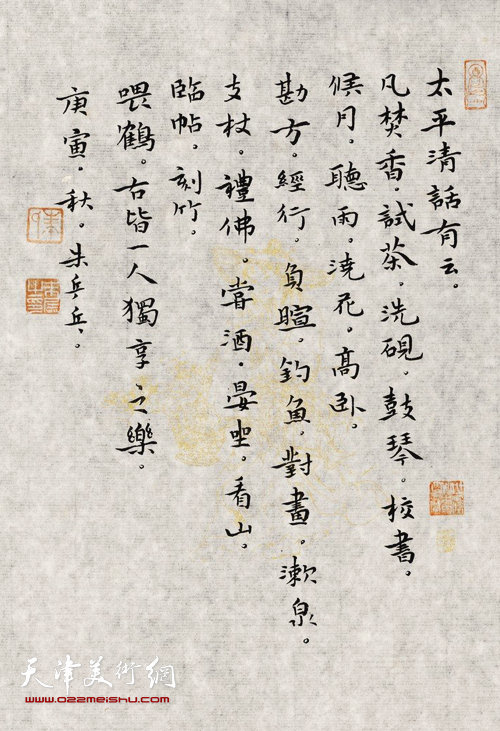 太平清話有云。
凡焚香。試茶。洗硯。鼓琴。校書。
候月。聽雨。澆花。高卧。
勘方。經行。負暄。釣魚。對畫。漱泉。
支杖。禮佛。嘗酒。晏坐。看山。
臨帖。刻竹。
喂鶴。右皆一人獨享之樂。
庚寅。秋。朱乒乓。
天津美術網
www.022meishu.com